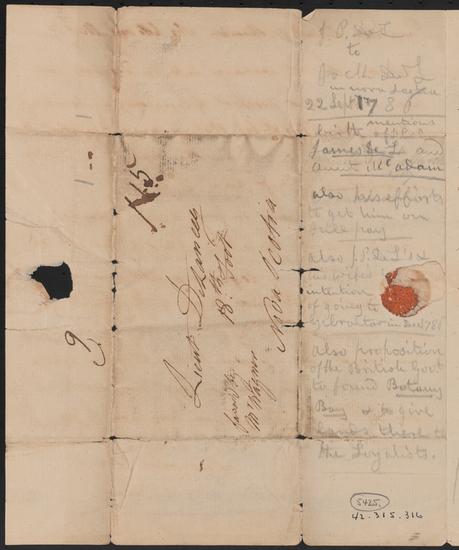 N5
Lieut. Delancey
18th foot
Nova Scotia
favor'd by
Mr Wagner
J. P. De L
to
in nova Scotia
22 Sept 178
mentions
birth of
James De L and
aunt McAdam
also his efforts
to get him on
full pay
also J. P. De L's &
his wife's
intention
of going to
Gibraltar in Dec 786
also proposition
of the British Govt
to found Botany
Bay & to give
lands there to
the Loyalists.
5425.
42.315.316